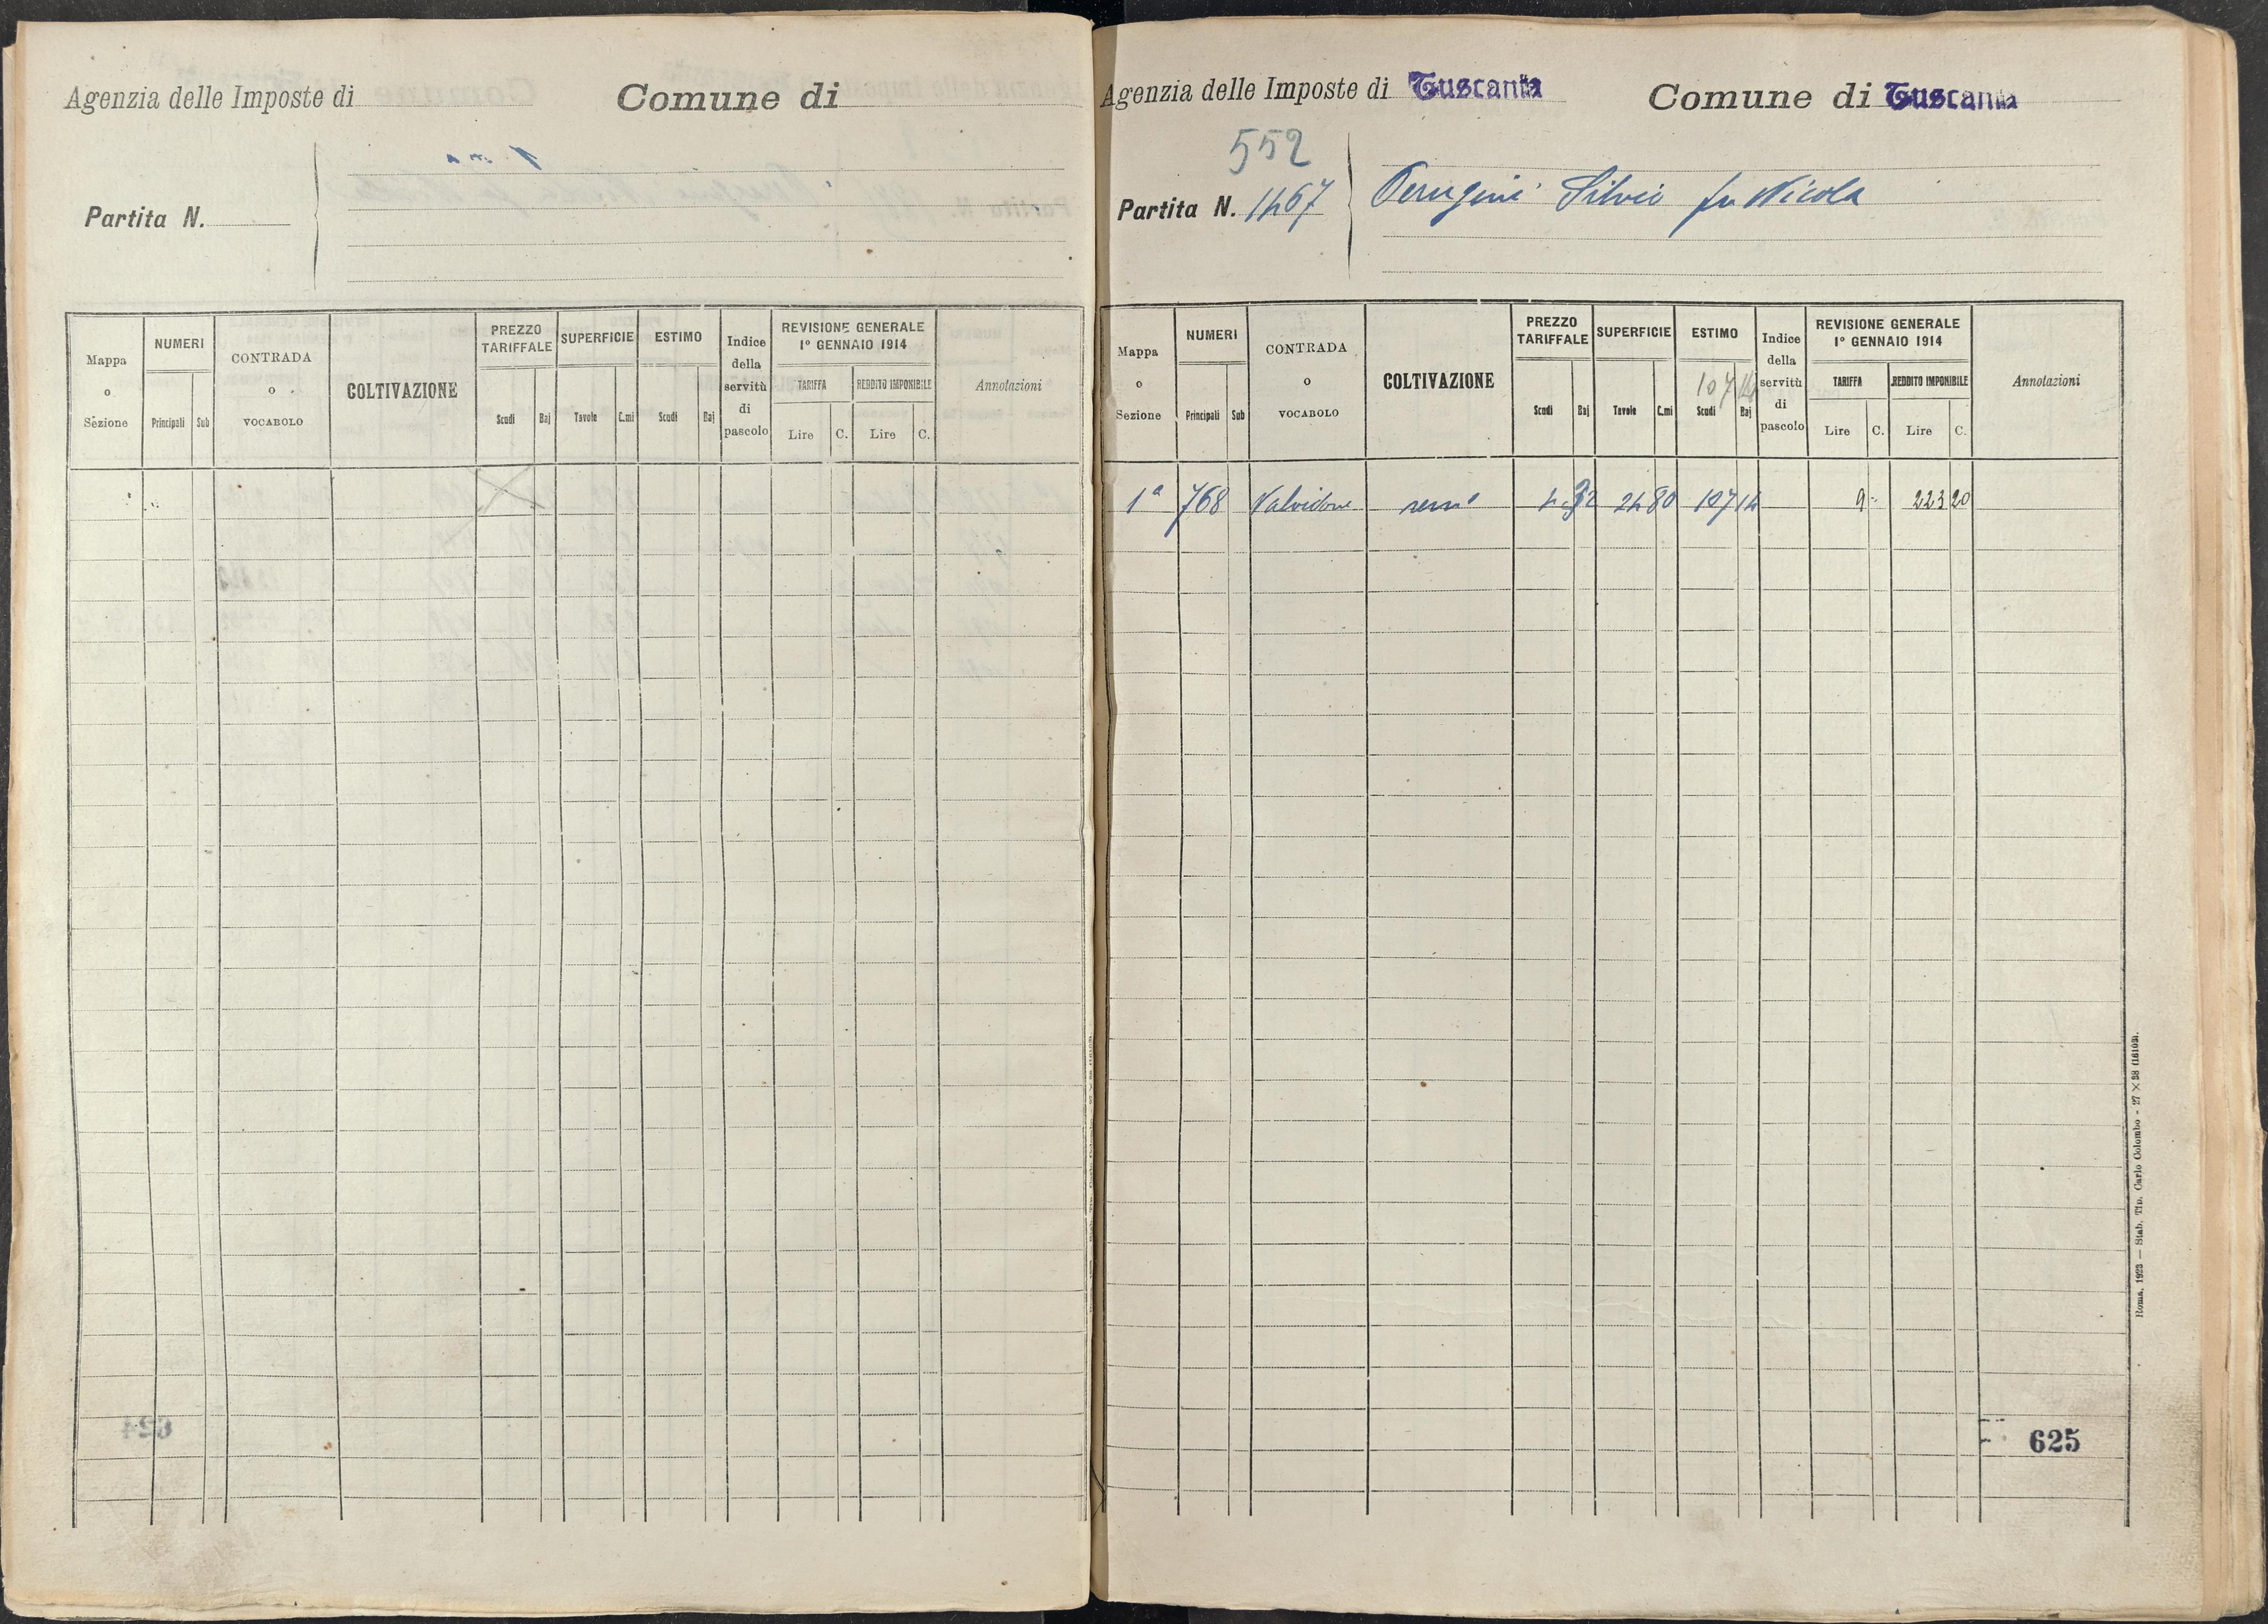 Agenzia delle Imposte di
Comune di
Partita N.
Mappa o Sezione
NUMERI
Principali Sub
CONTRADA o VOCABOLO
COLTIVAZIONE
PREZZO TARIFFALE
Scudi Baj
SUPERFICIE
Tavole C.mi
ESTIMO
Scudi Baj
Indice della servitù di pascolo
REVISIONE GENERALE
1º GENNAIO 1914
TARIFFA
REDDITO IMPONIBILE
Lire C. Lire C.
Annotazioni
Agenzia delle Imposte di Tuscania
Comune di Tuscania
552
Partita N. 1467
Perugini Silvio fu Nicola
Mappa o Sezione
NUMERI
Principali Sub
CONTRADA o VOCABOLO
COLTIVAZIONE
PREZZO TARIFFALE
Scudi Baj
SUPERFICIE
Tavole C.mi
ESTIMO
107 14
Scudi Baj
Indice della servitù di pascolo
REVISIONE GENERALE
1º GENNAIO 1914
TARIFFA
REDDITO IMPONIBILE
Lire C. Lire C.
Annotazioni
1ª 768 Valvidone sem 4 32 24 80 107 14 9 - 223 20
Roma, 1923 — Stab. Tip. Carlo Colombo - 27 × 38 (16103).
625